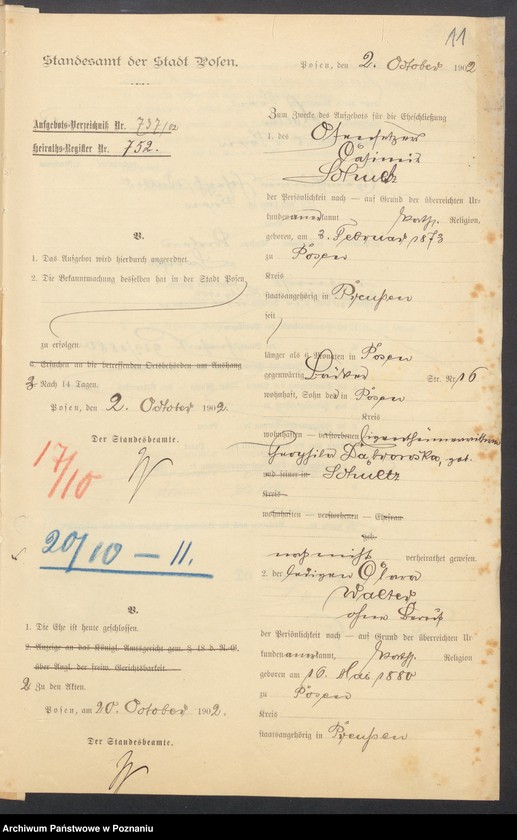 11
Standesamt der Stadt Posen.
Posen, den 2. October 1902
Aufgebots-Verzeichniß Nr. 737/02
Heiraths-Register Nr. 752.
V.
1. Das Aufgebot wird hierdurch angeordnet.
2. Die Bekanntmachung desselben hat in der Stadt Posen
zu erfolgen.
3. Ersuchen an die betreffenden Ortsbehörden um Aushang
3. Nach 14 Tagen.
Posen, den 2. October 1902.
Der Standesbeamte.
17/10
20/10 – 11.
V.
1. Die Ehe ist heute geschlossen.
2. Anzeige an das Königl. Amtsgericht gem. § 48 d. R.G.
über Angl. der freiw. Gerichtsbarkeit
2 Zu den Akten.
Posen, am 20. October 1902.
Der Standesbeamte.
Zum Zwecke des Aufgebots für die Eheschließung
1. des Ofensetzer
Casimir
Schultz
der Persönlichkeit nach — auf Grund der überreichten Ur-
kunden anerkannt kath. Religion,
geboren, am 3. Februar 1873
zu Posen
Kreis
staatsangehörig in Preußen
seit
länger als 6 Monaten in Posen
gegenwärtig Str. Nr. 16
wohnhaft, Sohn der in Posen
Kreis
wohnhaften — verstorbenen Eigenthümerwittwe
Theophila Dąbrowska, geb.
und seiner in Schultz
Kreis
wohnhaften — verstorbenen — Ehefrau
geb.
noch nicht verheirathet gewesen.
2. der ledigen Clara
Walter
ohne Beruf
der Persönlichkeit nach — auf Grund der überreichten Ur-
kunden anerkannt, kath. Religion
geboren am 16. Mai 1880
zu Posen
Kreis
staatsangehörig in Preußen
Archiwum Państwowe w Poznaniu